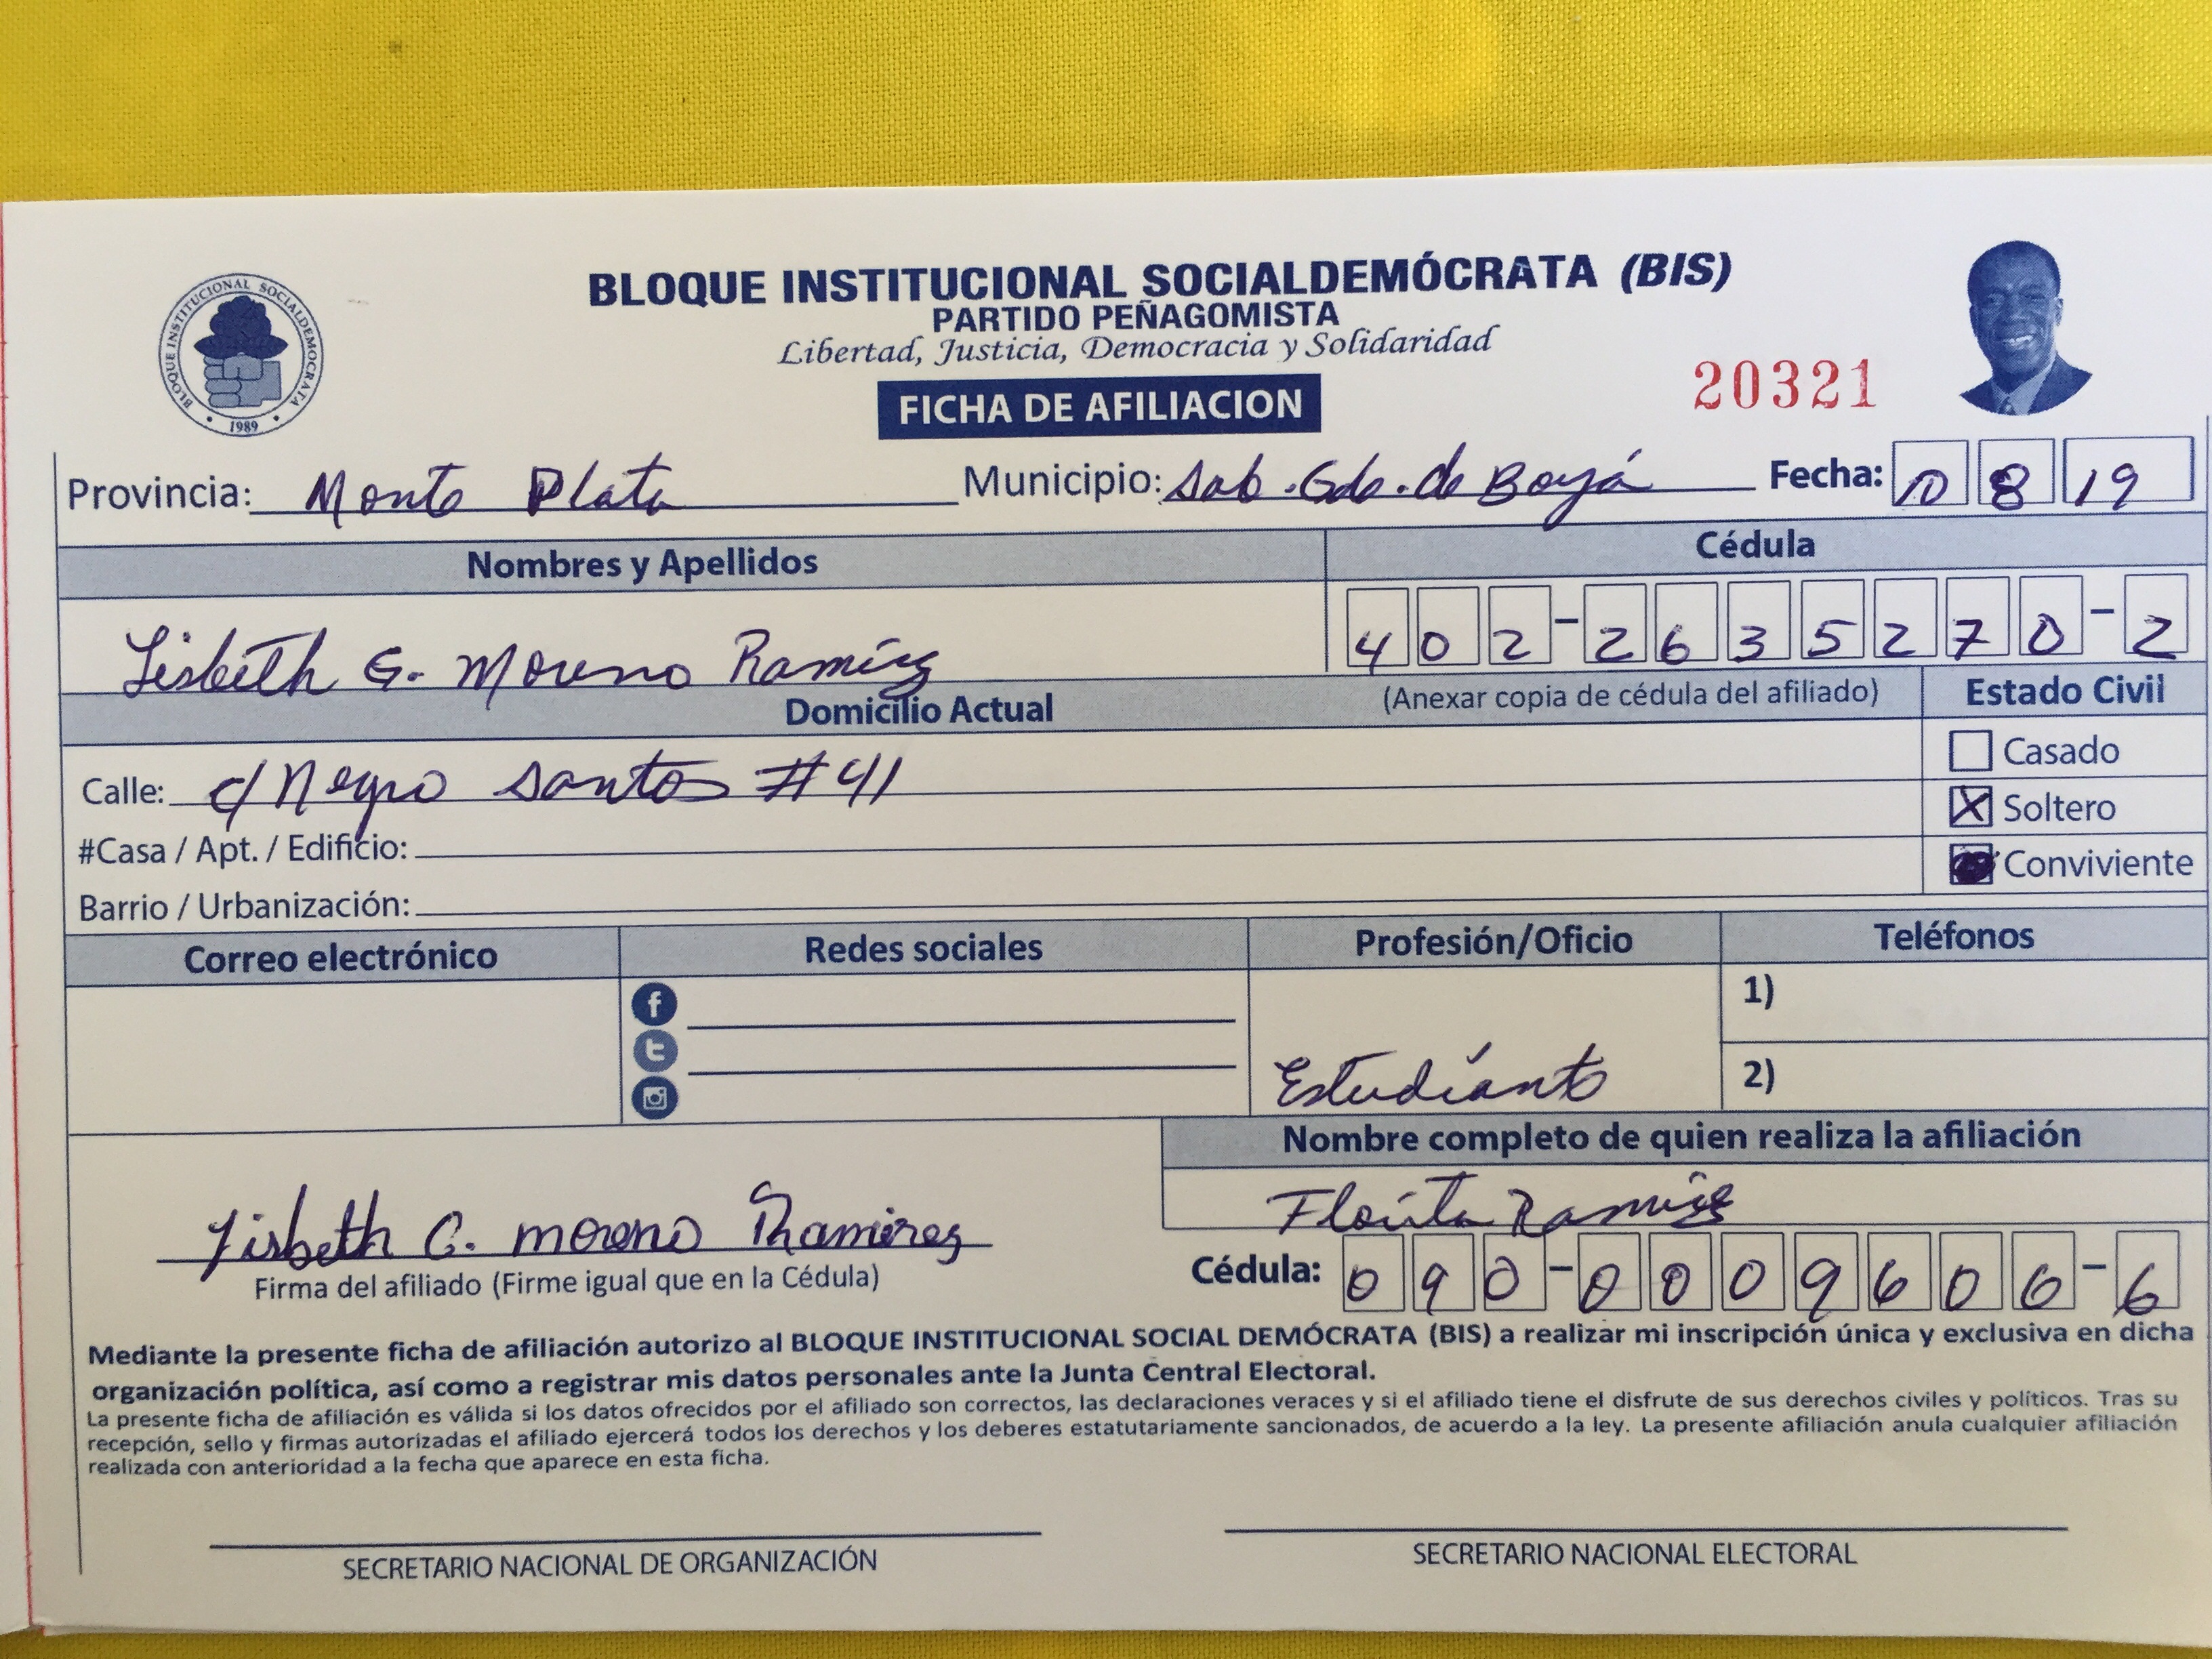 BLOQUE INSTITUCIONAL SOCIALDEMOCRATA
1989
BLOQUE INSTITUCIONAL SOCIALDEMÓCRATA (BIS)
PARTIDO PEÑAGOMISTA
Libertad, Justicia, Democracia y Solidaridad
20321
FICHA DE AFILIACION
Provincia: Monte Plata Municipio: Sab. Gde. de Boyá Fecha: 10 8 19
Nombres y Apellidos Cédula
Lisbeth G. Moreno Ramírez 402-2635270-2
Domicilio Actual (Anexar copia de cédula del afiliado) Estado Civil
Casado
Calle: c/ Negro Santos #41
X Soltero
#Casa / Apt. / Edificio:
Conviviente
Barrio / Urbanización:
Correo electrónico Redes sociales Profesión/Oficio Teléfonos
1)
Estudiante 2)
Nombre completo de quien realiza la afiliación
Florita Ramírez
Lisbeth G. moreno Ramirez
Firma del afiliado (Firme igual que en la Cédula)
Cédula: 090-0009606-6
Mediante la presente ficha de afiliación autorizo al BLOQUE INSTITUCIONAL SOCIAL DEMÓCRATA (BIS) a realizar mi inscripción única y exclusiva en dicha
organización política, así como a registrar mis datos personales ante la Junta Central Electoral.
La presente ficha de afiliación es válida si los datos ofrecidos por el afiliado son correctos, las declaraciones veraces y si el afiliado tiene el disfrute de sus derechos civiles y políticos. Tras su
recepción, sello y firmas autorizadas el afiliado ejercerá todos los derechos y los deberes estatutariamente sancionados, de acuerdo a la ley. La presente afiliación anula cualquier afiliación
realizada con anterioridad a la fecha que aparece en esta ficha.
SECRETARIO NACIONAL DE ORGANIZACIÓN SECRETARIO NACIONAL ELECTORAL